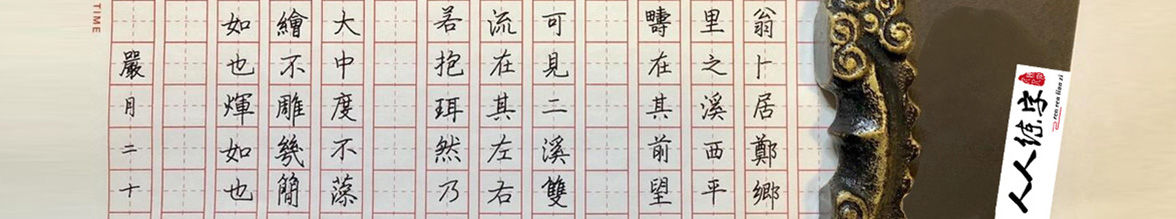 翁卜居鄭鄉
里之溪西平
疇在其前望
可見二溪雙
流在其左右
若抱珥然乃
大中度不藻
繪不雕幾簡
如也煇如也
嚴月二十
TIME
人人练字
ren ren lian zi